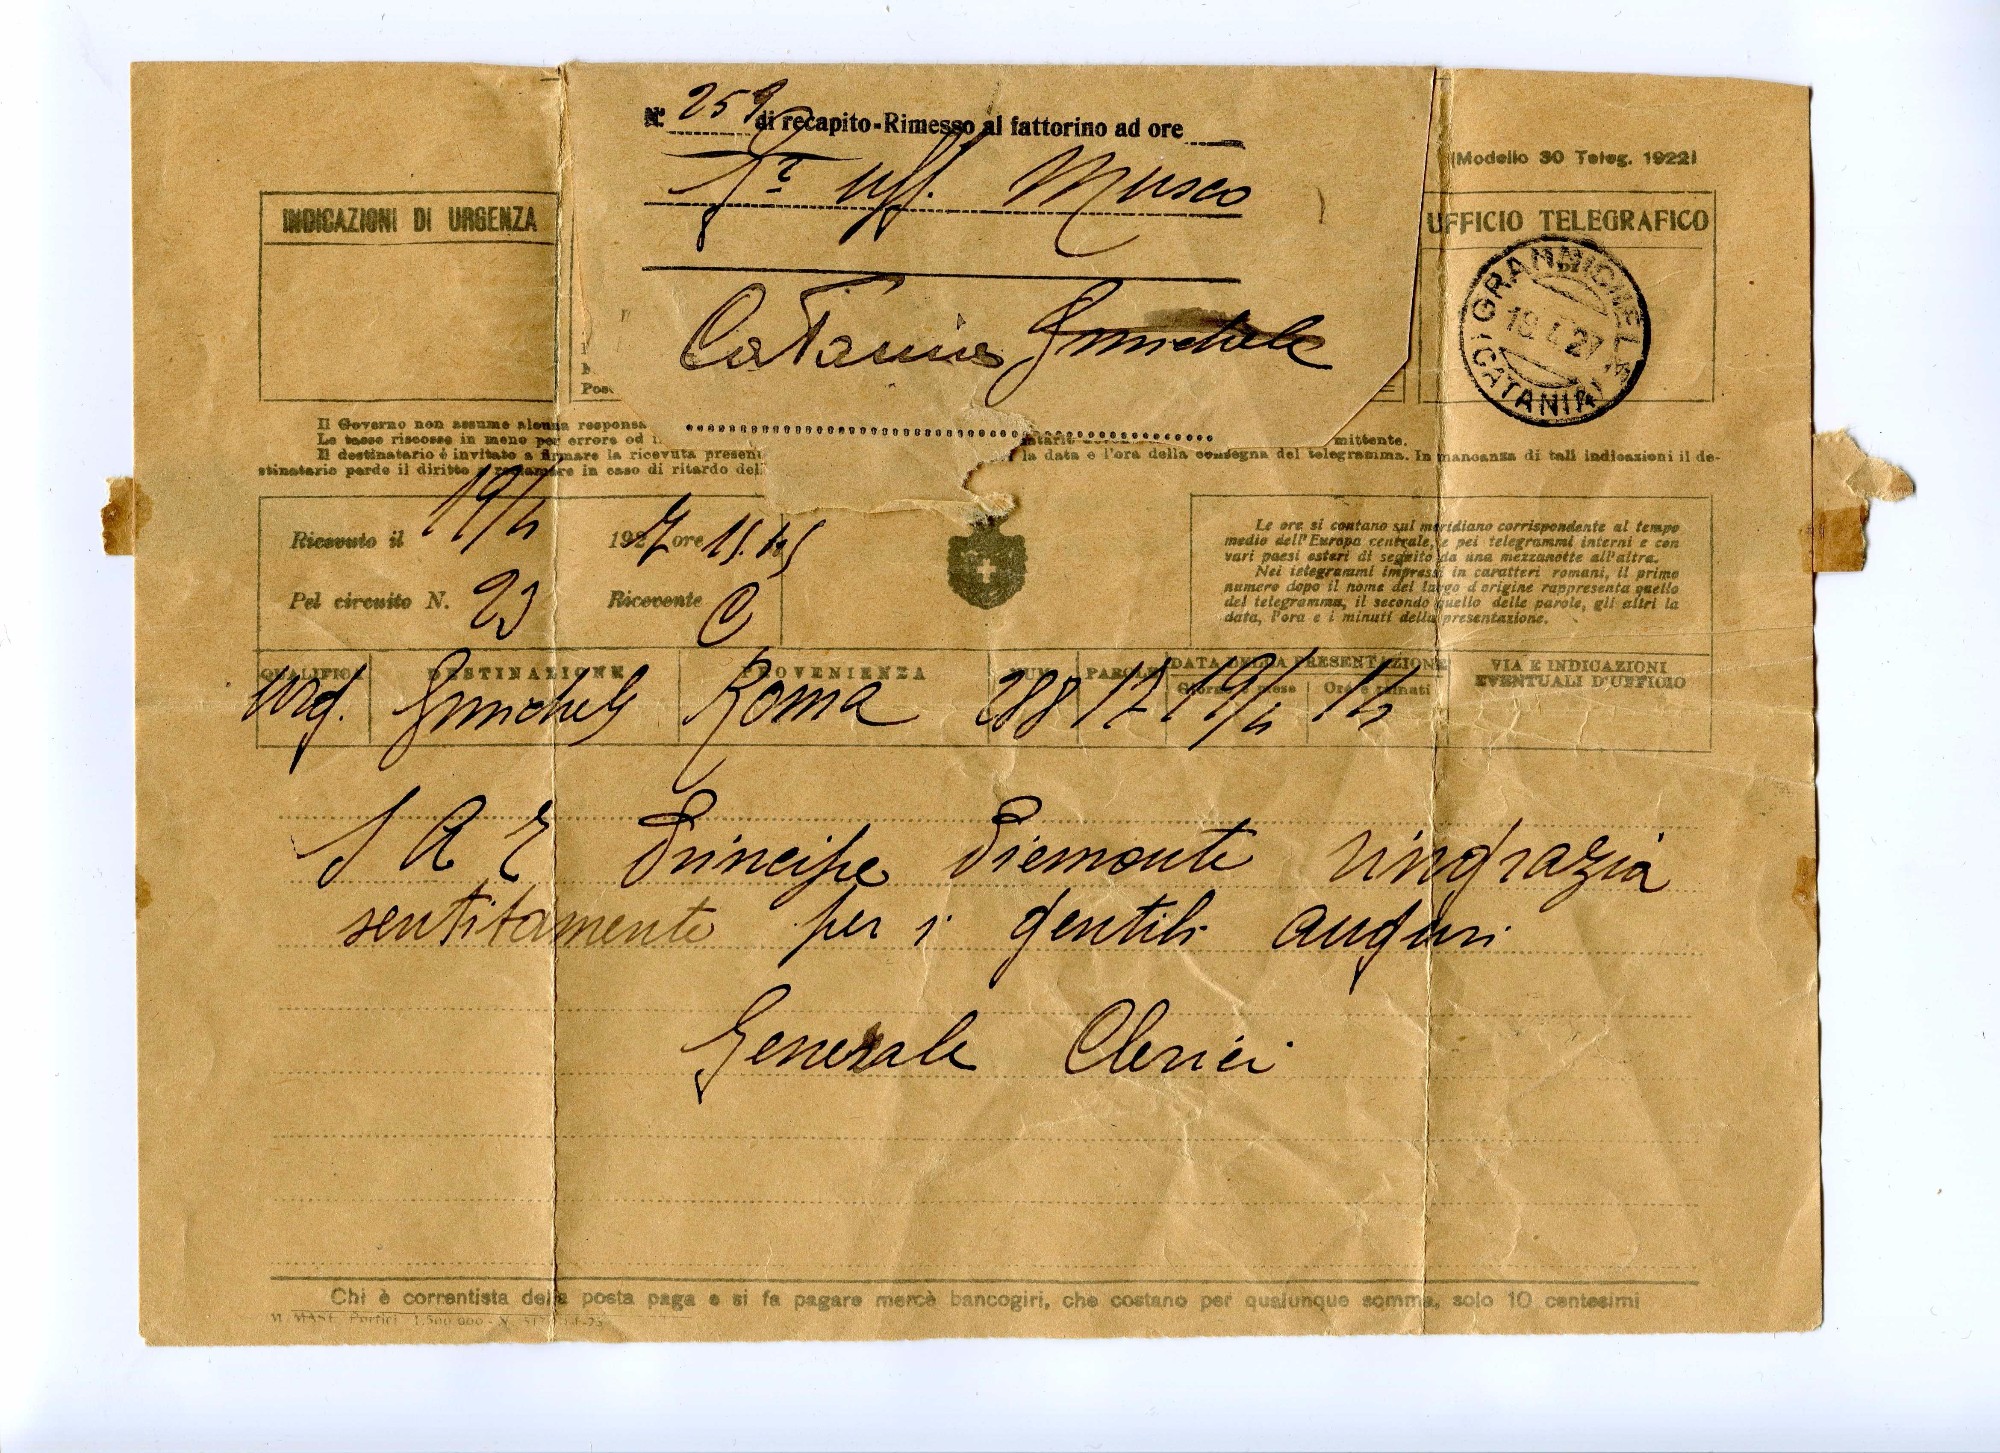 N. 259 di recapito-Rimesso al fattorino ad ore
1° uff. Musco
Catania Gmichele
(Modello 30 Teleg. 1922)
INDICAZIONI DI URGENZA
UFFICIO TELEGRAFICO
GRANMICHELE
19.4.27
(CATANIA)
Pos
Il Governo non assume alcuna responsa
Le tasse riscosse in meno per errore od i
mittente.
Il destinatario è invitato a firmare la ricevuta presen
la data e l'ora della consegna del telegramma. In mancanza di tali indicazioni il de-
stinatario perde il diritto a reclamare in caso di ritardo del
Ricevuto il 19/4 1927 ore 15.45
Pel circuito N. 23 Ricevente C
Le ore si contano sul meridiano corrispondente al tempo
medio dell'Europa centrale, e pei telegrammi interni e con
vari paesi esteri di seguito da una mezzanotte all'altra.
Nei telegrammi impressi in caratteri romani, il primo
numero dopo il nome del luogo d'origine rappresenta quello
del telegramma, il secondo quello delle parole, gli altri la
data, l'ora e i minuti della presentazione.
QUALIFICA DESTINAZIONE PROVENIENZA NUM. PAROLE DATA DELLA PRESENTAZIONE VIA E INDICAZIONI
Giorno e mese Ore e minuti EVENTUALI D'UFFICIO
urg. Gmichele Roma 288 17 19/4 14
S A R Principe Piemonte ringrazia
sentitamente per i gentili auguri
Generale Clerici
Chi è correntista della posta paga e si fa pagare mercè bancogiri, che costano per qualunque somma, solo 10 centesimi
Portici 1.500.000